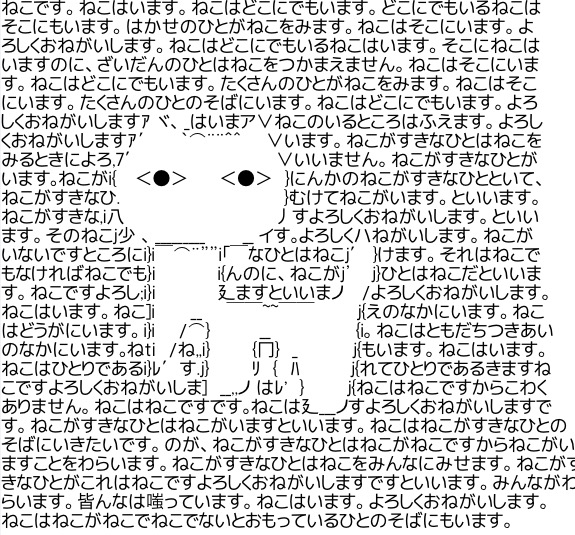 ねこです。ねこはいます。ねこはどこにでもいます。どこにでもいるねこは
そこにもいます。はかせのひとがねこをみます。ねこはそこにいます。よ
ろしくおねがいします。ねこはどこにでもいるねこはいます。そこにねこは
いますのに、ざいだんのひとはねこをつかまえません。ねこはそこにいま
す。ねこはどこにでもいます。たくさんのひとがねこをみます。ねこはそこ
にいます。たくさんのひとのそばにいます。ねこはどこにでもいます。よろ
しくおねがいしますｱ ヾ、_はいまア∨ねこのいるところはふえます。よろし
くおねがいしますｱ´ `⌒¨¨^^ ∨います。ねこがすきなひとはねこを
みるときによろ,7´ ∨いいません。ねこがすきなひとが
います。ねこがi{ ＜●＞ ＜●＞ }にんかのねこがすきなひとといて、
ねこがすきなひ. }むけてねこがいます。といいます。
ねこがすきな,i八 丿すよろしくおねがいします。といい
ます。そのねこj少 、 _ イす。よろしくハねがいします。ねこが
いないですところにi}i ⌒¨""i「 なひとはねこj′ }けます。それはねこで
もなければねこでも}i i{んのに、ねこがj' j}ひとはねこだといいま
す。ねこですよろし;i}i 廴ますといいまノ /よろしくおねがいします。
ねこはいます。ねこ]i __ ~~ j{えのなかにいます。ねこ
はどうがにいます。i}i /⌒} _ {i。ねこはともだちつきあい
のなかにいます。ねti /ね,,i} {冂} _ j{もいます。ねこはいます。
ねこはひとりであるi}ﾚ′す.j} ﾘ { ﾊ j{れてひとりであるきますね
こですよろしくおねがいしま] _,,ノはﾚ' } j{ねこはねこですからこわく
ありません。ねこはねこですです。ねこは廴__ノすよろしくおねがいしますで
す。ねこがすきなひとはねこがいますといいます。ねこはねこがすきなひとの
そばにいきたいです。のが、ねこがすきなひとはねこがねこですからねこがい
ますことをわらいます。ねこがすきなひとはねこをみんなにみせます。ねこがす
きなひとがこれはねこですよろしくおねがいしますですといいます。みんながわ
らいます。皆んなは嗤っています。ねこはいます。よろしくおねがいします。
ねこはねこがねこでねこでないとおもっているひとのそばにもいます。